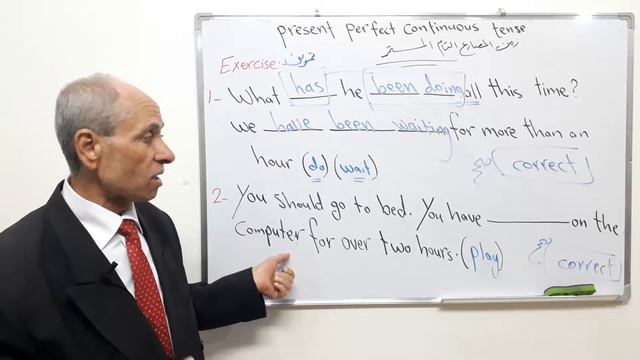 present perfect continuous tense
زمن المضارع التام المستمر
Exercise: تمرين
1- What has he been doing all this time?
we have been waiting for more than an
hour (do) (wait) (correct)
2- You should go to bed. You have ________ on the
Computer for over two hours. (play)
(correct)